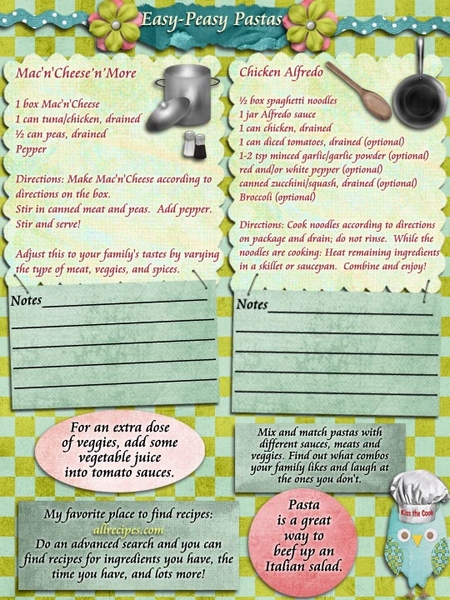 Easy-Peasy Pastas
Mac'n'Cheese'n'More
1 box Mac'n'Cheese
1 can tuna/chicken, drained
½ can peas, drained
Pepper
Directions: Make Mac'n'Cheese according to
directions on the box.
Stir in canned meat and peas.  Add pepper.
Stir and serve!
Adjust this to your family's tastes by varying
the type of meat, veggies, and spices.
Chicken Alfredo
½ box spaghetti noodles
1 jar Alfredo sauce
1 can chicken, drained
1 can diced tomatoes, drained (optional)
1-2 tsp minced garlic/garlic powder (optional)
red and/or white pepper (optional)
canned zucchini/squash, drained (optional)
Broccoli (optional)
Directions: Cook noodles according to directions
on package and drain; do not rinse.  While the
noodles are cooking: Heat remaining ingredients
in a skillet or saucepan.  Combine and enjoy!
Notes
Notes
For an extra dose
of veggies, add some
vegetable juice
into tomato sauces.
Mix and match pastas with
different sauces, meats and
veggies. Find out what combos
your family likes and laugh at
the ones you don't.
My favorite place to find recipes:
allrecipes.com
Do an advanced search and you can
find recipes for ingredients you have, the
time you have, and lots more!
Pasta
is a great
way to
beef up an
Italian salad.
Kiss the Cook